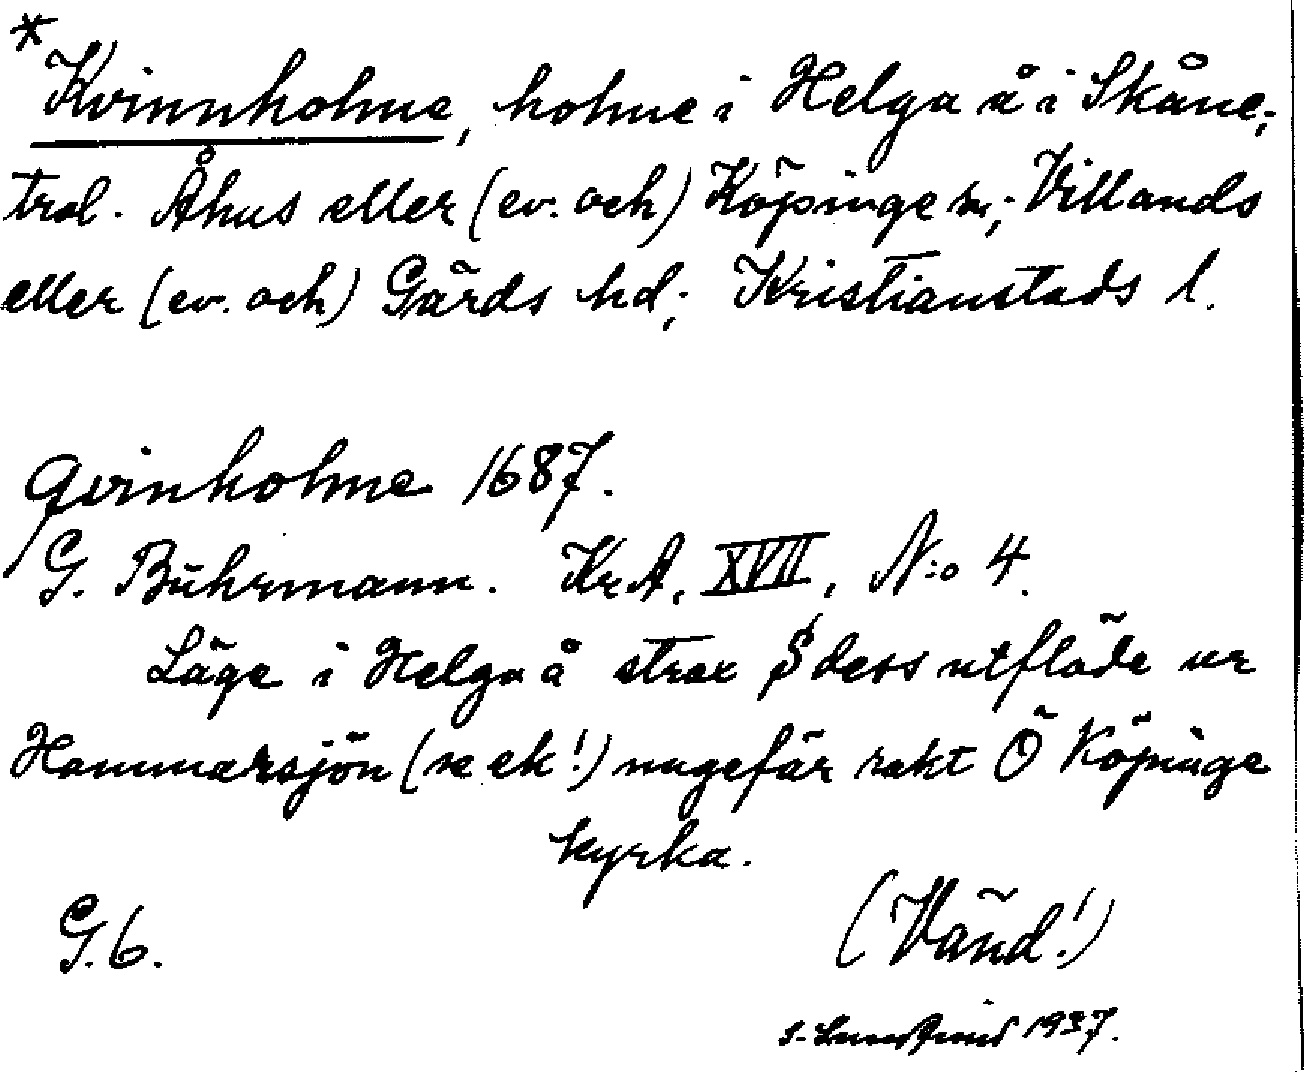 * Kvinnholme, holme i Helga å i Skåne;
trol. Åhus eller (ev. och) Köpinge sn; Villands
eller (ev. och) Gärds hd; Kristianstads l.
Qvinholme 1687.
G. Buhrmann. Kr.A. XVII, N:o 4.
Läge i Helga å strax S dess utflöde ur
Hammarsjön (se ek!) ungefär rakt Ö Köpinge
kyrka.
G. 6.
(Vänd!)
1937.